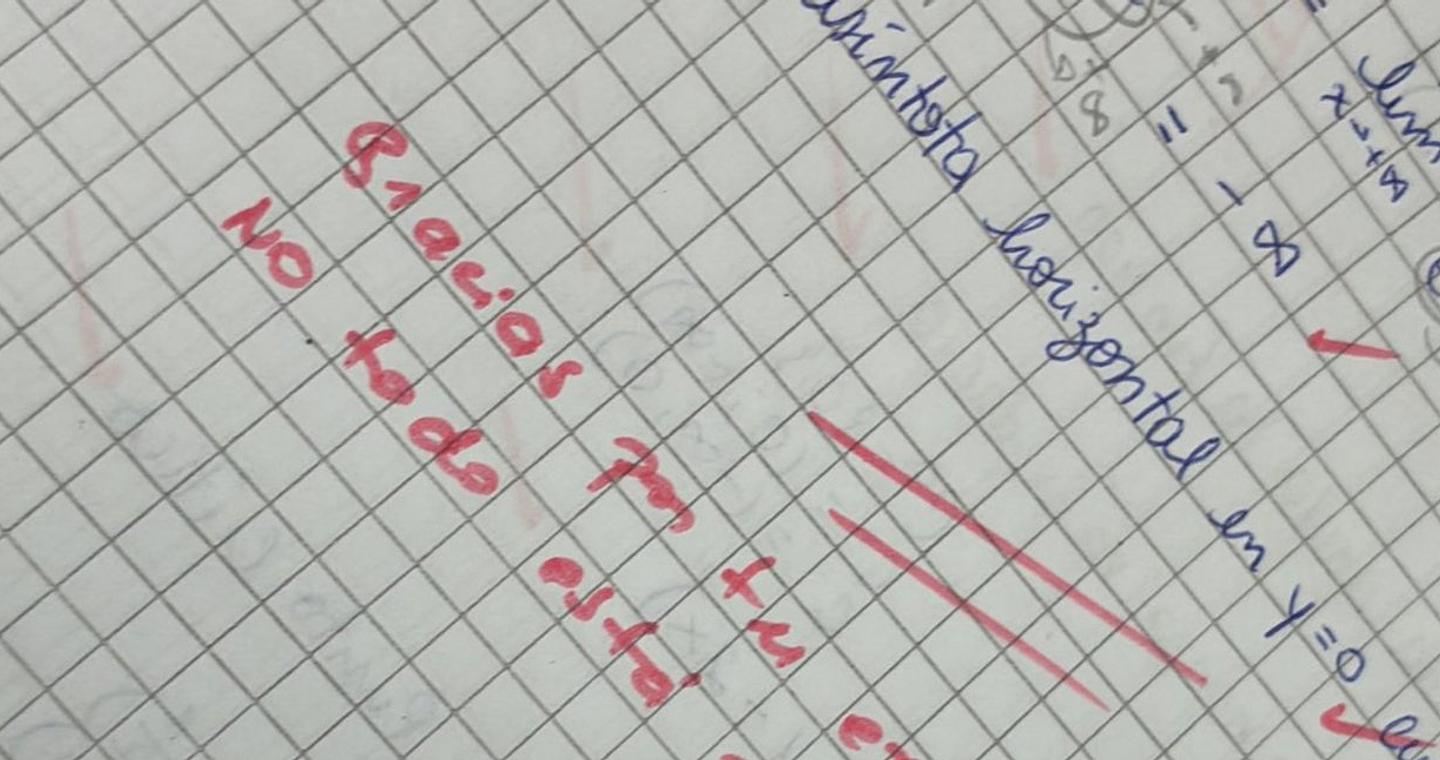 lim
x→+∞
= - ∞
asíntota horizontal en y=0
Gracias por tu
NO todo está